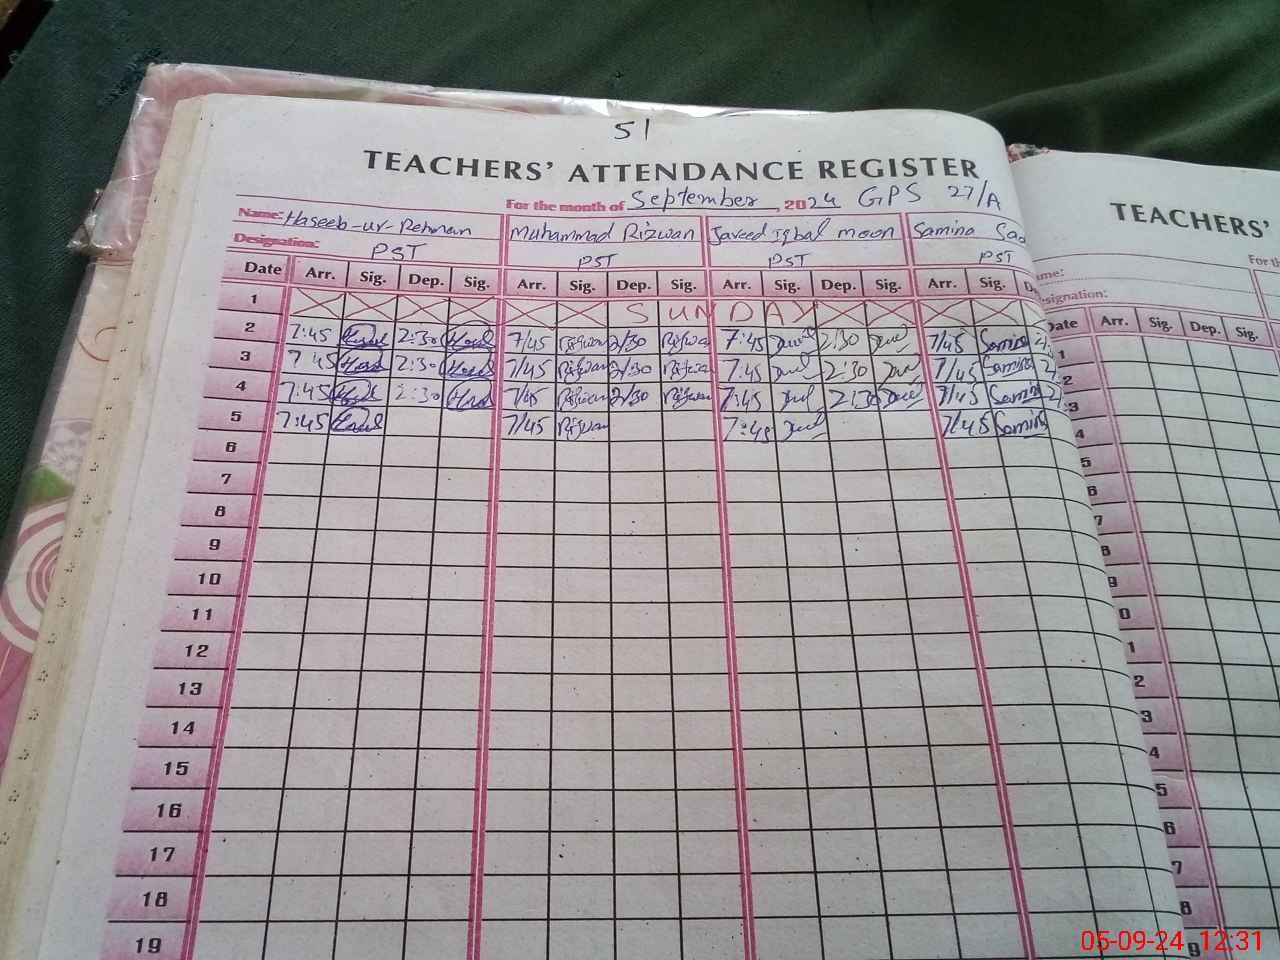 51
TEACHERS' ATTENDANCE REGISTER
For the month of September, 2024 GPS 27/A
Name: Haseeb-ur-Rehman Muhammad Rizwan Javeed iqbal moon Samina
Designation: PST PST PST PST
Date Arr. Sig. Dep. Sig. Arr. Sig. Dep. Sig. Arr. Sig. Dep. Sig. Arr. Sig.
1 SUNDAY
2 7:45 2:30 7/45 Rizwan 2/30 Rizwan 7:45 2:30 7/45 Samina
3 7:45 2:30 7/45 Rizwan 2/30 Rizwan 7:45 2:30 7/45 Samina
4 7:45 2:30 7/45 Rizwan 2/30 Rizwan 7:45 2:30 7/45 Samina
5 7:45 7/45 Rizwan 7:45 7/45 Samina
6
7
8
9
10
11
12
13
14
15
16
17
18
19
TEACHERS'
For th
ame:
esignation:
Date Arr. Sig. Dep. Sig.
1
2
3
4
5
6
7
8
9
0
1
2
3
4
5
6
7
8
9
05-09-24 12:31